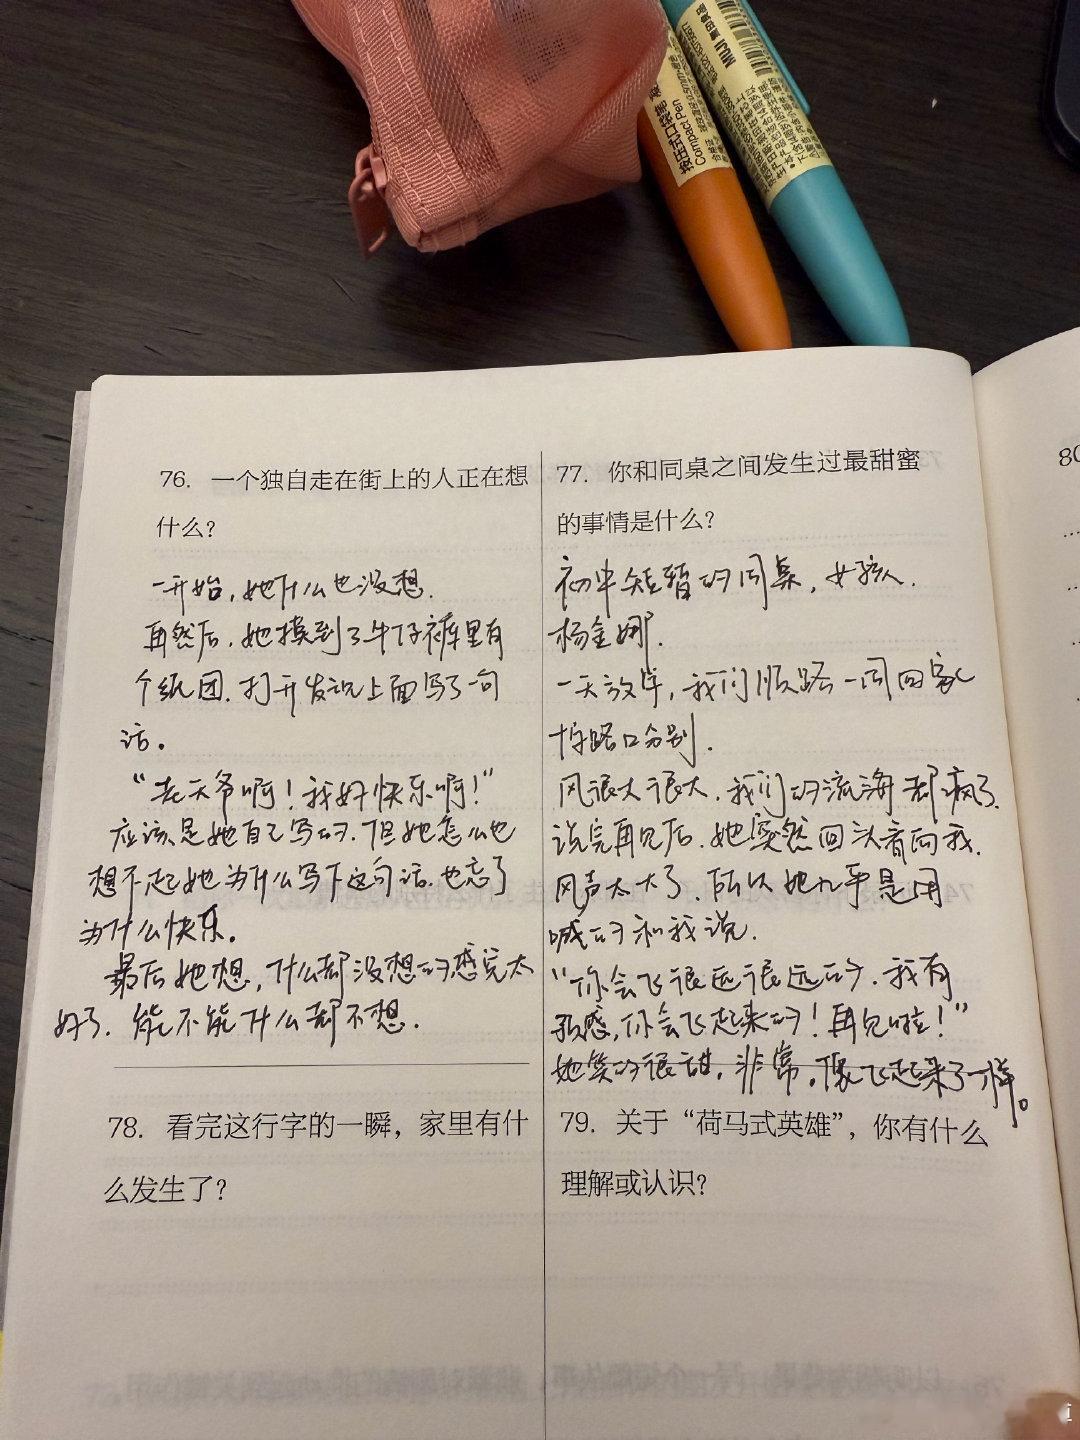 MUJI 無印良品
按压式口袋笔
Compact Pen
76. 一个独自走在街上的人正在想
什么？
一开始，她什么也没想.
再然后，她摸到了牛仔裤里有
个纸团.打开发现上面写了一句
话。
“老天爷啊！我好快乐啊！”
应该是她自己写的.但她怎么也
想不起她为什么写下这句话.也忘了
为什么快乐。
最后她想，什么都没想的感觉太
好了.能不能什么都不想.
77. 你和同桌之间发生过最甜蜜
的事情是什么？
初中短暂的同桌，女孩人.
杨金娜.
一天放学，我们顺路一同回家
十字路口分别.
风很大很大.我们的流海都疯了.
说完再见后.她突然回头看向我.
风声太大了.所以她几乎是用
喊的和我说.
“你会飞很远很远的.我有
预感，你会飞起来的！再见啦！”
她笑的很甜，非常，像飞起来了一样。
78. 看完这行字的一瞬，家里有什
么发生了？
79. 关于“荷马式英雄”，你有什么
理解或认识？
80